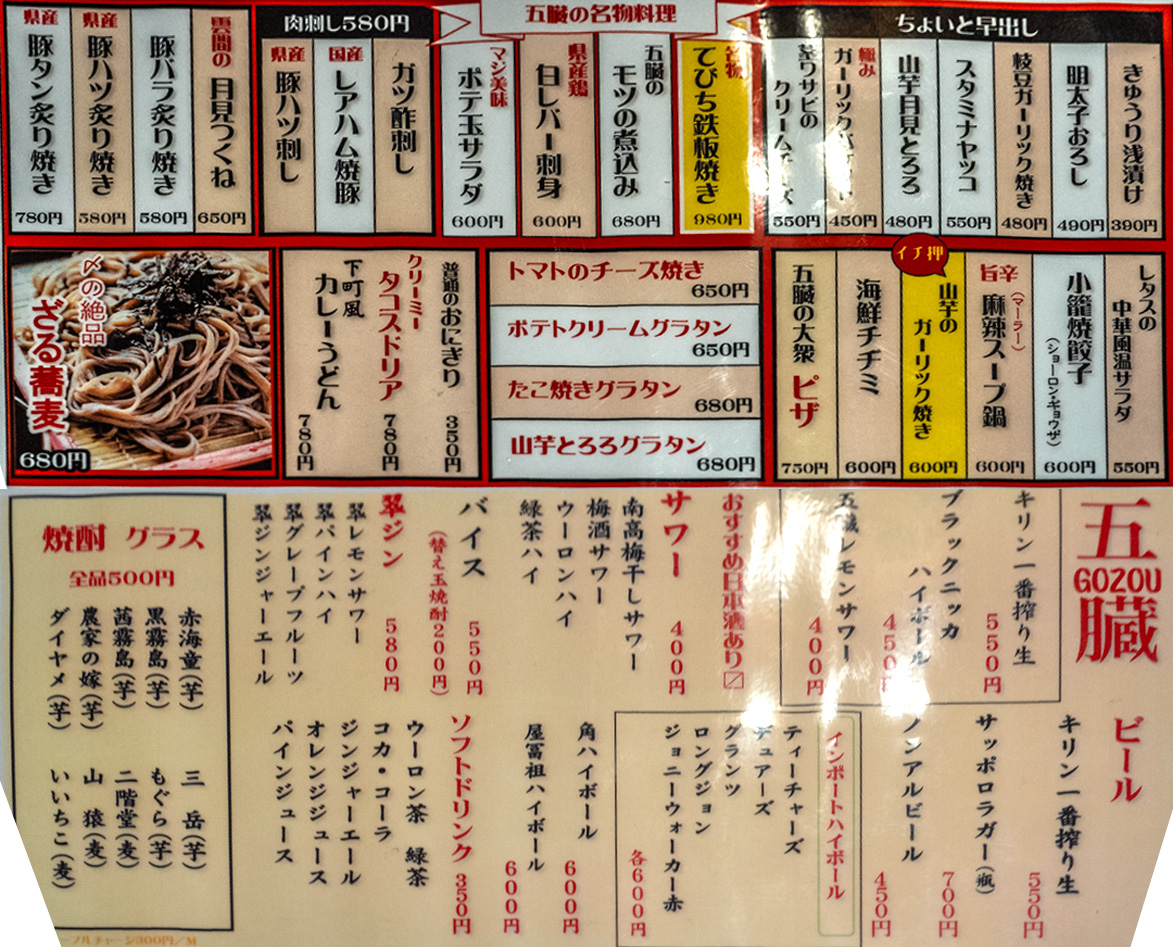 ちょいと早出し
きゅうり浅漬け
390円
明太子おろし
490円
枝豆ガーリック焼き
480円
スタミナヤッコ
550円
山芋月見とろろ
480円
極み
ガーリック
450円
茎ワサビの
クリームチーズ
550円
五臓の名物料理
名物
てびち鉄板焼き
980円
五臓の
モツの煮込み
680円
県産鶏
白レバー刺身
600円
マジ美味
ポテ玉サラダ
600円
肉刺し580円
ガツ酢刺し
国産
レアハム焼豚
県産
豚ハツ刺し
雲間の
月見つくね
650円
豚バラ炙り焼き
580円
県産
豚ハツ炙り焼き
580円
県産
豚タン炙り焼き
780円
レタスの
中華風温サラダ
550円
小籠焼餃子
(ショーロン・ギョウザ)
600円
旨辛
麻辣スープ鍋
(マーラー)
600円
イチ押
山芋の
ガーリック焼き
600円
海鮮チヂミ
600円
五臓の大衆 ピザ
750円
トマトのチーズ焼き
650円
ポテトクリームグラタン
650円
たこ焼きグラタン
680円
山芋とろろグラタン
680円
普通のおにぎり 350円
クリーミー
タコスドリア 780円
下町風
カレーうどん 780円
〆の絶品
ざる蕎麦
680円
五臓
GOZOU
ビール
キリン一番搾り生 550円
サッポロラガー(瓶) 700円
ノンアルビール 450円
キリン一番搾り生 550円
ブラックニッカ
ハイボール 450円
五臓レモンサワー 400円
インポートハイボール
ティーチャーズ
デュアーズ
グランツ
ロングジョン
ジョニーウォーカー赤
各600円
おすすめ日本酒あり〼
サワー 400円
南高梅干しサワー
梅酒サワー
ウーロンハイ
緑茶ハイ
角ハイボール 600円
屋冨祖ハイボール 600円
バイス 550円
(替え玉焼酎200円)
翠ジン 580円
翠レモンサワー
翠パインハイ
翠グレープフルーツ
翠ジンジャーエール
ソフトドリンク 350円
ウーロン茶 緑茶
コカ・コーラ
ジンジャーエール
オレンジジュース
パインジュース
焼酎 グラス
全品500円
赤海童(芋)
黒霧島(芋)
茜霧島(芋)
農家の嫁(芋)
ダイヤメ(芋)
三岳(芋)
もぐら(芋)
二階堂(麦)
山猿(麦)
いいちこ(麦)